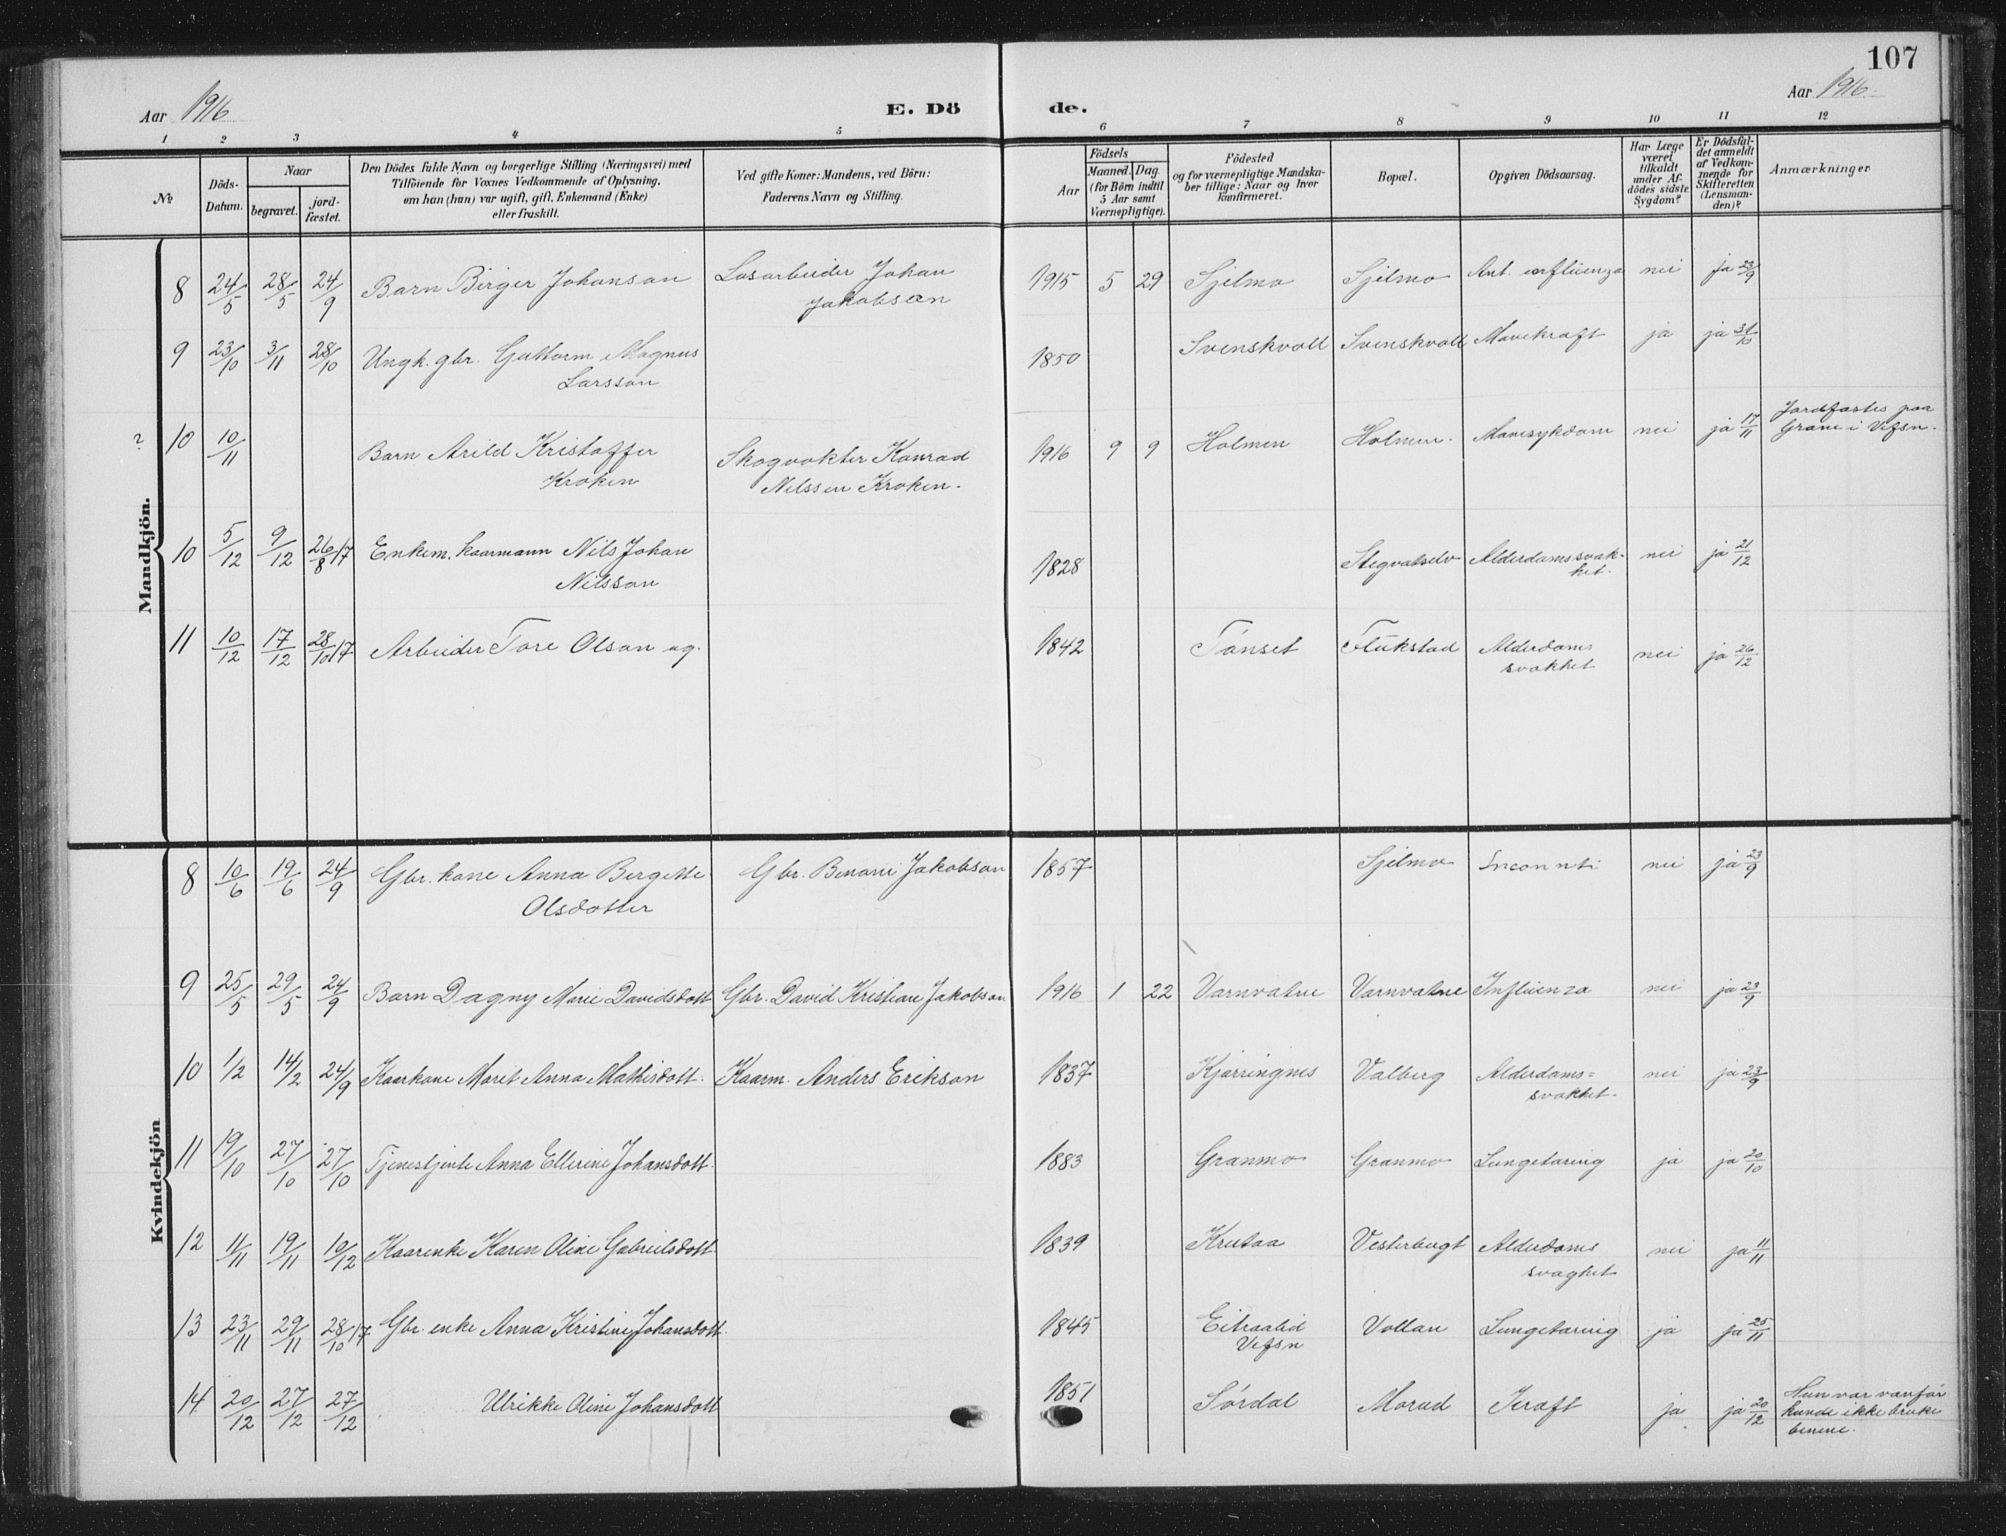 107
Aar 1916
E. Dö
de.
Aar 1916.
1 2 3 4 5 6 7 8 9 10 11 12
№
Döds-
Datum.
Naar
begravet.
jord-
fæstet.
Den Dödes fulde Navn og borgerlige Stilling (Næringsvei) med
Tilföiende for Voxnes Vedkommende af Oplysning,
om han (hun) var ugift, gift, Enkemand (Enke)
eller fraskilt.
Ved gifte Koner: Mandens, ved Börn:
Faderens Navn og Stilling.
Födsels
Aar
Maaned. Dag.
(for Börn indtil
5 Aar samt
Værnepligtige).
Födested
og for værnepligtige Mandska-
ber tillige: Naar og hvor
konfirmeret.
Bopæl.
Opgiven Dödsaarsag.
Har Læge
været
tilkaldt
under Af-
dödes sidste
Sygdom?
Er Dödsfal-
det anmeldt
af Vedkom-
mende for
Skifteretten
(Lensman-
den)?
Anmærkninger
Mandkjön.
8 24/5 28/5 24/9 Barn Birger Johanson Løsarbeider Johan 1915 5 29 Sjelmo Sjelmo Ant. influenza nei ja 23/9
Jakobsen
9 23/10 3/11 28/10 Ungk. gbr. Guttorm Magnus 1850 Svenskvoll Svenskvoll Mavekræft ja ja 31/10
Larsson
? 10 10/11 Barn Arild Kristoffer Skogvokter Konrad 1916 9 9 Holmen Holmen. Mavesykdom nei ja 17/11 Jordfæstes paa
Kroken Nilssen Kroken. Grane i Vefsn.
10 5/12 9/12 26/8 17 Enkem. kaarmann Nils Johan 1828 Stegvatselv Alderdomssvak- nei ja 21/12
Nilsson het.
11 10/12 17/12 28/10 17 Arbeider Tore Olson ug. 1842 Tönset Flukstad Alderdoms nei ja 26/12
svakhet
Kvindekjön
8 10/6 19/6 24/9 Gbr. kone Anna Bergette Gbr. Benoni Jakobson 1857 Sjelmo Inconnti nei ja 23/9
Olsdotter
9 25/5 29/5 24/9 Barn Dagny Marie Davidsdott Gbr. David Kristian Jakobson 1916 1 22 Varnvatne Varnvatne Influenza nei ja 23/9
10 1/2 14/2 24/9 Kaarkone Marit Anna Mathisdott. Kaarm. Anders Erikson 1837 Kjærringnes Valberg Alderdoms= nei ja 23/9
svakhet.
11 19/10 27/10 27/10 Tjenestjente Anna Ellerine Johansdott. 1883 Granmo Granmo Lungetæring ja ja 20/10
12 11/11 19/11 10/12 Kaarenke Karen Oline Gabrielsdott. 1839 Krutaa Vesterbugt Alderdoms nei ja 11/11
svaghet
13 23/11 29/11 28/10 17 Gbr. enke Anna Kristine Johansdott. 1845 Eitraalid Vollan Lungetæring ja ja 25/11
Vefsn
14 20/12 27/12 27/12 Ulrikke Oline Johansdott 1851 Sørdal Morud Kræft ja ja 20/12 Hun var vanfør
kunde ikke bruke
benene.